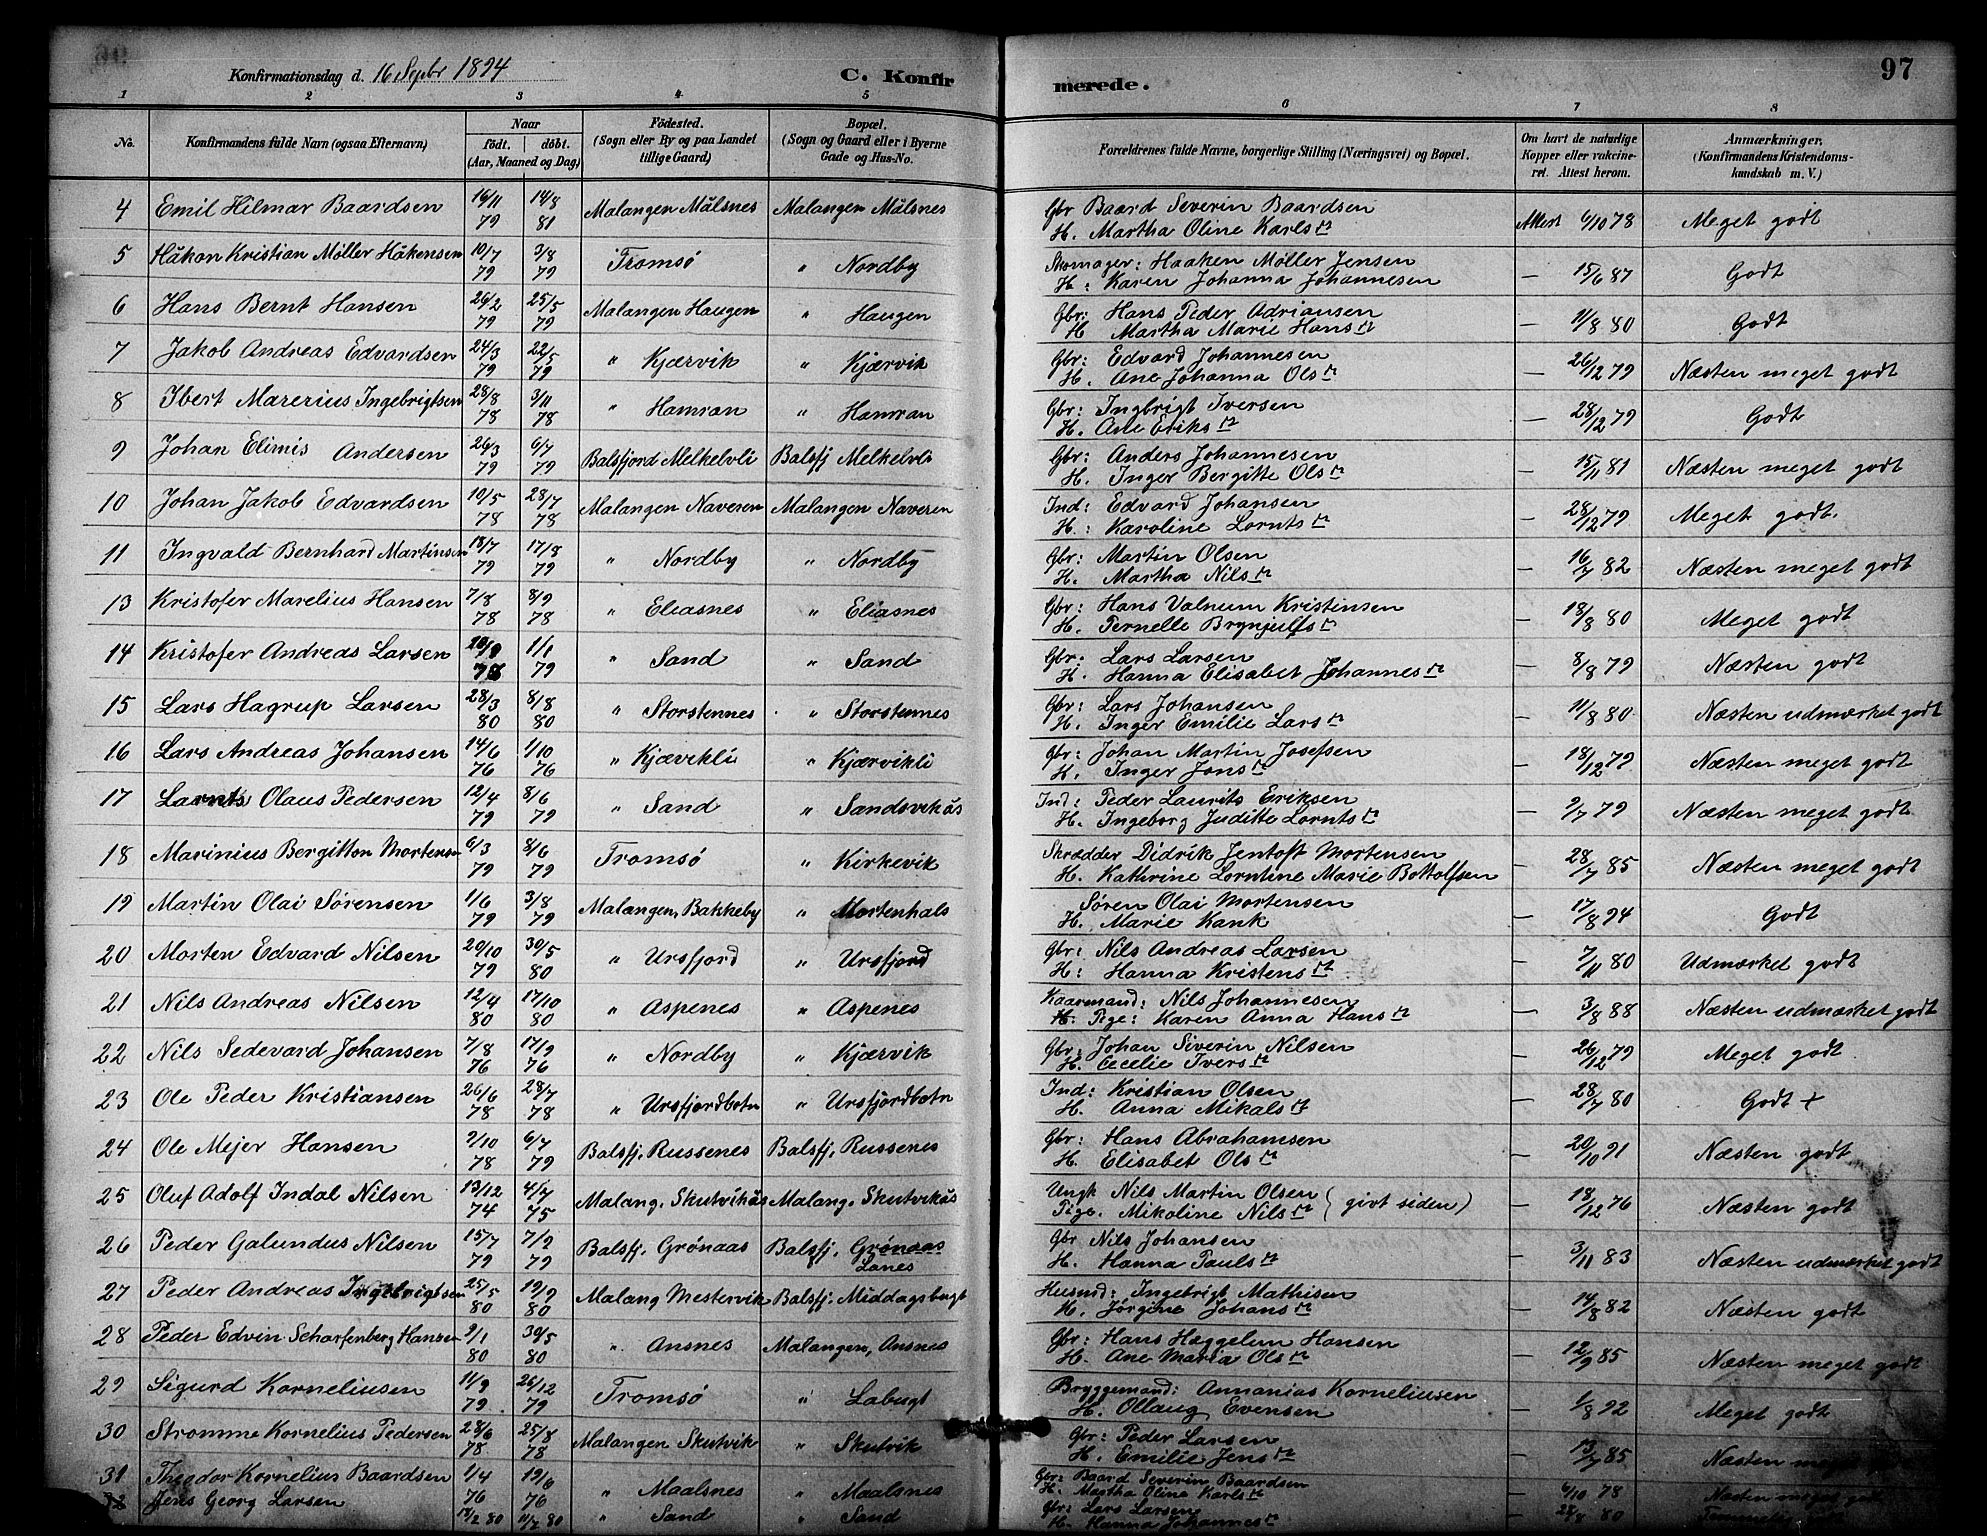 Konfirmationsdag d. 16 Septbr 1894
C. Konfirmerede.
97
1 2 3 4 5 6 7 8
No. | Konfirmandens fulde Navn (ogsaa Efternavn) | Naar født. døbt. (Aar, Maaned og Dag) | Fødested. (Sogn eller By og paa Landet tillige Gaard) | Bopæl. (Sogn og Gaard eller i Byerne Gade og Hus-No. | Forældrenes fulde Navne, borgerlige Stilling (Næringsvei) og Bopæl. | Om havt de naturlige Kopper eller vakcineret. Attest herom. | Anmærkninger. (Konfirmandens Kristendomskundskab m. V.)
4 Emil Hilmar Baardsen 16/11 79 14/8 81 Malangen Målsnes Malangen Målsnes Gbr Baard Severin Baardsen H. Martha Oline Karlsdtr Attest 6/10 78 Meget godt
5 Håkon Kristian Møller Håkensen 10/7 79 3/8 79 Tromsø " Nordby Skomager: Haaken Møller Jensen H: Karen Johanna Johannesen — 15/6 87 Godt
6 Hans Bernt Hansen 26/2 79 25/5 79 Malangen Haugen " Haugen Gbr: Hans Peder Adriansen H Martha Marie Hansdtr — 9/8 80 Godt
7 Jakob Andreas Edvardsen 24/3 79 22/5 79 " Kjærvik " Kjærvik Gbr: Edvard Johannesen H. Ane Johanna Olsdtr — 26/12 79 Næsten meget godt
8 Ibert Marerius Ingebrigtsen 28/8 78 3/11 78 " Hamran " Hamran Gbr: Ingbrigt Iversen H. Ane Eriksdtr — 28/12 79 Godt
9 Johan Elimis Andersen 26/3 79 6/7 79 Balsfjord Melkelvli Balsfj Melkelvli Gbr: Anders Johannesen H. Inger Bergitte Olsdtr — 15/11 81 Næsten meget godt
10 Johan Jakob Edvardsen 10/5 78 28/7 78 Malangen Naveren Malangen Naveren Ind: Edvard Johansen H: Karoline Lorntsdtr — 28/12 79 Meget godt.
11 Ingvald Bernhard Martinsen 18/7 79 17/8 79 " Nordby " Nordby Gbr: Martin Olsen H. Martha Nilsdtr — 16/7 82 Næsten meget godt
13 Kristofer Marelius Hansen 7/8 78 8/9 78 " Eliasnes " Eliasnes Gbr: Hans Valnum Kristensen H. Pernelle Brynjulfsdtr — 18/8 80 Meget godt
14 Kristofer Andreas Larsen 78 1/1 79 " Sand " Sand Gbr: Lars Larsen H. Hanna Elisabet Johannesdtr — 8/8 79 Næsten godt
15 Lars Hagrup Larsen 28/3 80 8/8 80 " Storstennes " Storstennes Gbr: Lars Johansen H. Inger Emilie Larsdtr — 11/8 80 Næsten udmærket godt
16 Lars Andreas Johansen 14/6 76 1/10 76 " Kjævikli " Kjærvikli Gbr: Johan Martin Josefsen H. Inger Jonsdtr — 18/12 79 Næsten meget godt
17 Larnts Olaus Pedersen 12/4 79 8/6 79 " Sand " Sandsvikås Ind: Peder Laurits Eriksen H. Ingeborg Juditte Lorntsdtr — 9/7 79 Næsten meget godt
18 Marinius Bergitton Mortensen 6/3 79 8/6 79 Tromsø " Kirkevik Skrædder Didrik Jentoft Mortensen H. Kathrine Lorntine Marie Bottolfsen — 28/7 85 Næsten meget godt
19 Martin Olai Sørensen 1/6 79 3/8 79 Malangen, Bakkeby " Mortenhals Søren Olai Mortensen H. Marie Kank — 17/8 94 Godt
20 Morten Edvard Nilsen 20/10 79 30/5 80 " Ursfjord " Ursfjord Gbr: Nils Andreas Larsen H: Hanna Kristensdtr — 7/11 80 Udmærket godt
21 Nils Andreas Nilsen 12/4 80 17/10 80 " Aspenes " Aspenes Kaarmand: Nils Johannesen H. Pige: Karen Anna Hansdtr — 3/8 88 Næsten udmærket godt
22 Nils Sedevard Johansen 7/8 76 17/9 76 " Nordby " Kjærvik Gbr: Johan Siverin Nilsen H. Cecelie Iversdtr — 26/12 79 Meget godt
23 Ole Peder Kristiansen 26/6 78 28/7 78 " Ursfjordbotn " Ursfjordbotn Ind: Kristian Olsen H. Anna Mikalsdtr — 28/7 80 Godt +
24 Ole Mejer Hansen 9/10 78 6/7 79 Balsfj, Russenes Balsfj, Russenes Gbr: Hans Abrahamsen H. Elisabet Olsdtr — 20/10 91 Næsten godt
25 Oluf Adolf Indal Nilsen 13/12 74 4/7 75 Malang. Skutvikås Malang. Skutvikås Ungk Nils Martin Olsen Pige. Mikoline Nilsdtr (givt siden) — 18/12 76 Næsten godt
26 Peder Galundus Nilsen 15/7 79 7/9 79 Balsfj, Grønaas Balsfj, Grønaas Lanes Gbr Nils Johansen H. Hanna Paulsdtr — 3/11 83 Næsten udmærket godt
27 Peder Andreas Ingebrigtsen 25/5 80 19/9 80 Malang Mestervik Balsfj, Middagsbugt Husmd: Ingebrigt Mathisen H. Jørgine Johansdtr — 14/8 82 Næsten godt
28 Peder Edvin Scharfenberg Hansen 9/1 80 30/5 80 " Ansnes Malangen, Ansnes Gbr: Hans Hæggelun Hansen H. Ane Maria Olsdtr — 12/9 85 Næsten meget godt
29 Sigurd Korneliusen 11/9 79 26/12 79 Tromsø " Labugt Bryggemand: Annanias Korneliusen H. Ollaug Evensen — 1/8 92 Meget godt
30 Stromme Kornelius Pedersen 28/6 78 25/8 78 Malangen Skutvik " Skutvik Gbr: Peder Larsen H. Emilie Jensdtr — 13/7 85 Næsten meget godt
31 Theodor Kornelius Baardsen 1/4 76 19/6 76 " Maalsnes " Maalsnes Gbr: Baard Severin Baardsen H. Martha Oline Karlsdtr — 6/10 78 Næsten meget godt
32 Jens Georg Larsen 17/2 80 11/7 80 " Sand " Sand Gbr: Lars Larsen H. Hanna Johannesdtr — 80